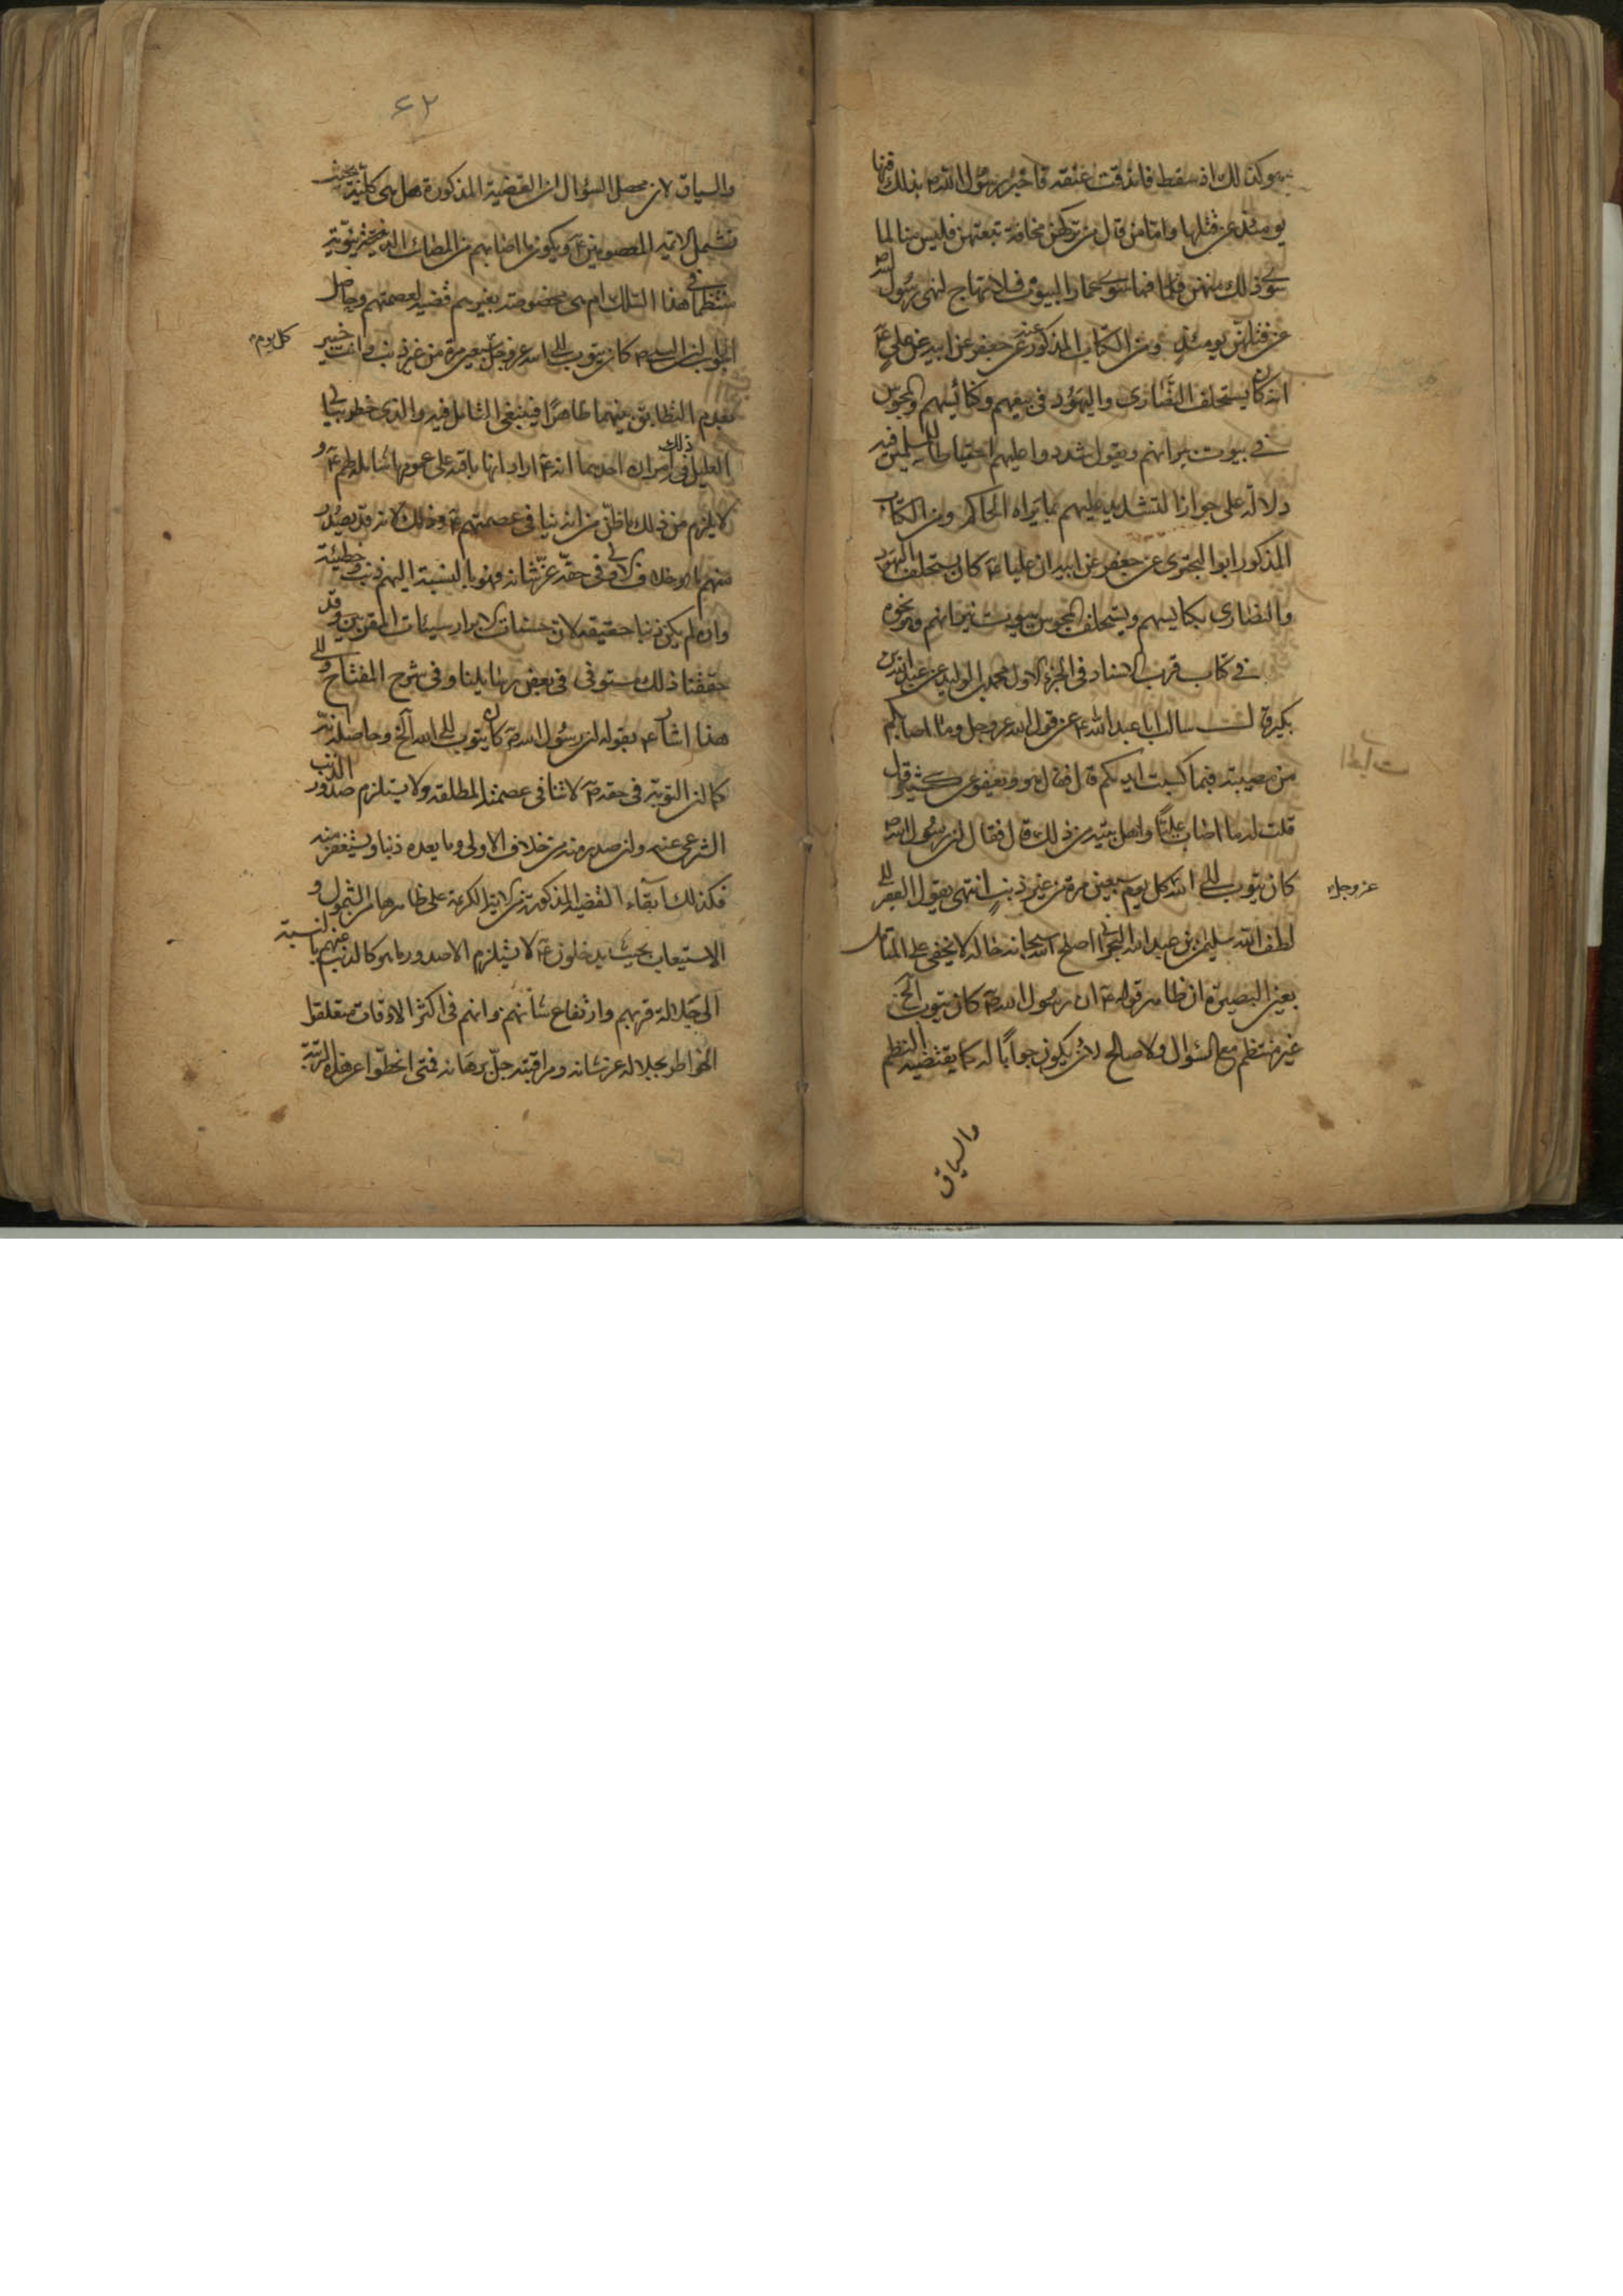 هو كذلك اذ سقط فاندقت عنقه فاخبر رسول الله ص بذلك فنهى
يومئذ عن قتلها واما من قال من تركهن مخافة تبعتهن فليس منا لما
سوى ذلك منهن فاما عمار البيوت فلا تهتاج لنهى رسول الله ص
عن قتلهن يومئذ ومن الكتاب المذكور عنه عن جعفر عن ابيه عن على ع
انه كان يستحلف النصارى واليهود فى بيعهم وكنائسهم والمجوس
فى بيوت نيرانهم ويقول شددوا عليهم احتياطا للمسلمين فيه
دلالة على جواز التشديد عليهم بما يراه الحاكم ومن الكتاب
المذكور ابو البخترى عن جعفر عن ابيه ان عليا ع كان يستحلف اليهود
والنصارى بكنايسهم ويستحلف المجوس ببيوت نيرانهم ونحوه
فى كتاب قرب الاسناد فى الجزء الاول محمد بن الوليد عن عبد الله بن
بكير قال سالت ابا عبد الله ع عن قول الله عز وجل وما اصابكم
من مصيبة فبما كسبت ايديكم قال فقال هو ويعفو عن كثير قال
قلت له ما اصاب عليا واهل بيته من ذلك قال فقال ان رسول الله ص
كان يتوب الى الله كل يوم سبعين مرة من غير ذنب انتهى يقول الفقير الى
عز وجل
لطف الله سليمن بن عبد الله البحرانى اصلح الله سبحانه حاله لا يخفى على المتامل
بعين البصيرة ان ظاهر قوله ع ان رسول الله ص كان يتوب الخ
غير منتظم مع السؤال ولا صالح لان يكون جوابا له كما يقتضيه النظم
والسياق
٦٢
والسياق لان محصل السؤال ان القضية المذكورة هل هى كلية بحيث
تشمل الائمة المعصومين ع ويكون ما اصابهم من المصائب
منتظما فى هذا السلك ام هى مخصوصة بغيرهم قضية لعصمتهم وحاصل
الجواب ان النبى ص كان يتوب الى الله عز وجل سبعين مرة من غير ذنب وانت خبير
كل يوم
بعدم التطابق بينهما ظاهرا فينبغى التامل فيه والذى خطر ببالى
العليل فى ذلك امران احدهما انه ع اراد انها باقية على عمومها شاملة لهم ع و
لا يلزم من ذلك ما ظن من انه ينافى عصمتهم ع وذلك لانه قد يصدر
منهم ما هو خلاف الاولى فى حقه عز شانه وهو بالنسبة اليهم ذنب وخطيئة
وان لم يكن ذنبا حقيقة لان حسنات الابرار سيئات المقربين وقد
حققنا ذلك مستوفى فى بعض رسايلنا وفى شرح المفتاح والى
هذا اشار ع بقوله ان رسول الله ص كان يتوب الى الله الخ وحاصله انه
كما ان التوبة فى حقه ص لا تنافى عصمته المطلقة ولا يستلزم صدور الذنب
الشرعى عنه وان صدر منه من خلاف الاولى وما يعده ذنبا ويستغفر منه
فكذلك ابقاء القضية المذكورة من الاية الكريمة على ظاهرها من الشمول و
الاستيعاب بحيث يدخلون ع لا يستلزم الا صدور ما هو كالذنب منهم بالنسبة
الى جلالة قربهم وارتفاع شانهم وانهم فى اكثر الاوقات متعلقوا
الخواطر بجلاله عز شانه ومراقبته جل برهانه فمتى انحطوا عن هذه الرتبة